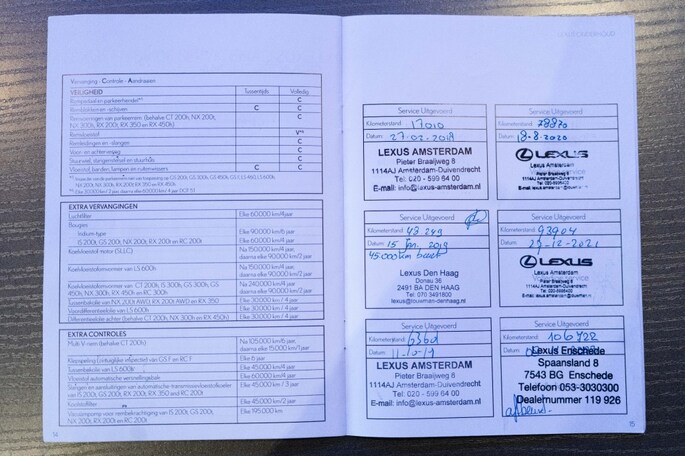 Vervanging - Controle - Aandraaien
VEILIGHEID Tussentijds Volledig
Rempedaal en parkeerhendel C
Remblokken en -schijven C C
Remvoeringen van parkeerrem (behalve CT 200h, NX 200t, C
NX 300h, RX 200t, RX 350 en RX 450h)
Remvloeistof V
Remleidingen en -slangen C
Voor- en achterophanging C
Stuurwiel, stangenstelsel en stuurhuis C
Vloeistof, banden, lampen en ruitenwissers C C
EXTRA VERVANGINGEN
Luchtfilter Elke 60.000 km/4 jaar
Bougies
Iridium-type Elke 90.000 km/6 jaar
IS 200t, GS 200t, NX 200t, RX 200t en RC 200t Elke 60.000 km/4 jaar
Koelvloeistof motor (SLLC) Na 150.000 km/4 jaar,
daarna elke 90.000 km/2 jaar
Koelvloeistofomvormer van LS 600h Na 150.000 km/4 jaar,
daarna elke 90.000 km/2 jaar
Koelvloeistofomvormer van CT 200h, IS 300h, GS 300h, GS Na 240.000 km/4 jaar
450h, NX 300h, RX 450h en RC 300h daarna elke 90.000 km/2 jaar
Elke 30.000 km / 4 jaar
Voordifferentieelolie van LS 600h Elke 30.000 km / 4 jaar
Differentieelolie achter (behalve CT 200h, NX 300h en RX 450h) Elke 30.000 km / 4 jaar
EXTRA CONTROLES
Multi V riem (behalve CT 200h) Na 105.000 km/6 jaar,
daarna elke 15.000 km/1 jaar
Klepspeling van GS F en RC F Elke 6 jaar
Elke 45.000 km/4 jaar
Vloeistof automatische versnellingsbak Elke 60.000 km/4 jaar
Slangen en aansluitingen van automatische transmissievloeistofkoeler Elke 45.000 km / 3 jaar
van IS 200t, GS 200t, RX 200t, RX 350 and RC 200t
Koolstoffilter Elke 45.000 km/2 jaar
Vacuümpomp voor rembekrachtiging van IS 200t, GS 200t, Elke 195.000 km
NX 200t, RX 200t en RC 200t
14
Service Uitgevoerd
Kilometerstand 17010
Datum 27-02-2018
LEXUS AMSTERDAM
Pieter Braaijweg 8
1114AJ Amsterdam-Duivendrecht
Tel: 020 - 599 64 00
E-mail: info@lexus-amsterdam.nl
Service Uitgevoerd
Kilometerstand 43249
Datum 15 jan 2019
45000 km beurt
Lexus Den Haag
Donau 36
2491 BA DEN HAAG
Tel: 070 3491600
lexus@louwman-denhaag.nl
Service Uitgevoerd
Kilometerstand
Datum 11-10-19
LEXUS AMSTERDAM
Pieter Braaijweg 8
1114AJ Amsterdam-Duivendrecht
Tel: 020 - 599 64 00
E-mail: info@lexus-amsterdam.nl
Service Uitgevoerd
Kilometerstand 78870
Datum 18-8-2020
LEXUS
Lexus Amsterdam
Pieter Braaijweg 8
1114AJ Amsterdam-Duivendrecht
Service Uitgevoerd
Kilometerstand 93904
Datum 29-12-2021
LEXUS
Lexus Amsterdam
Pieter Braaijweg 8
1114AJ Amsterdam-Duivendrecht
Service Uitgevoerd
Kilometerstand 106722
Datum
Lexus Enschede
Spaansland 8
7543 BG Enschede
Telefoon 053-3030300
Dealernummer 119 926
15